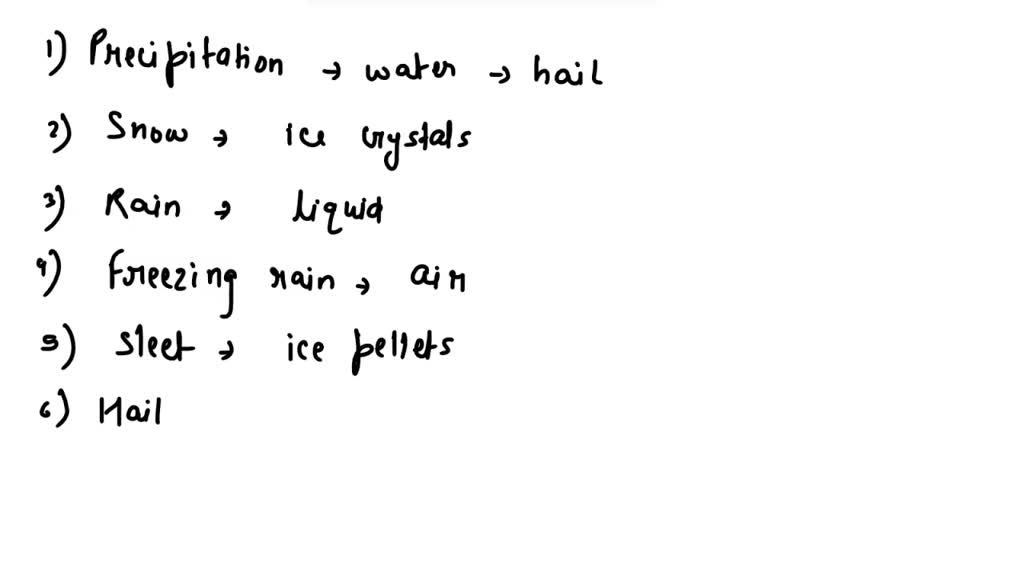 1) Precipitation → water → hail
2) Snow → ice crystals
3) Rain → liquid
4) Freezing rain → air
5) Sleet → ice pellets
6) Hail